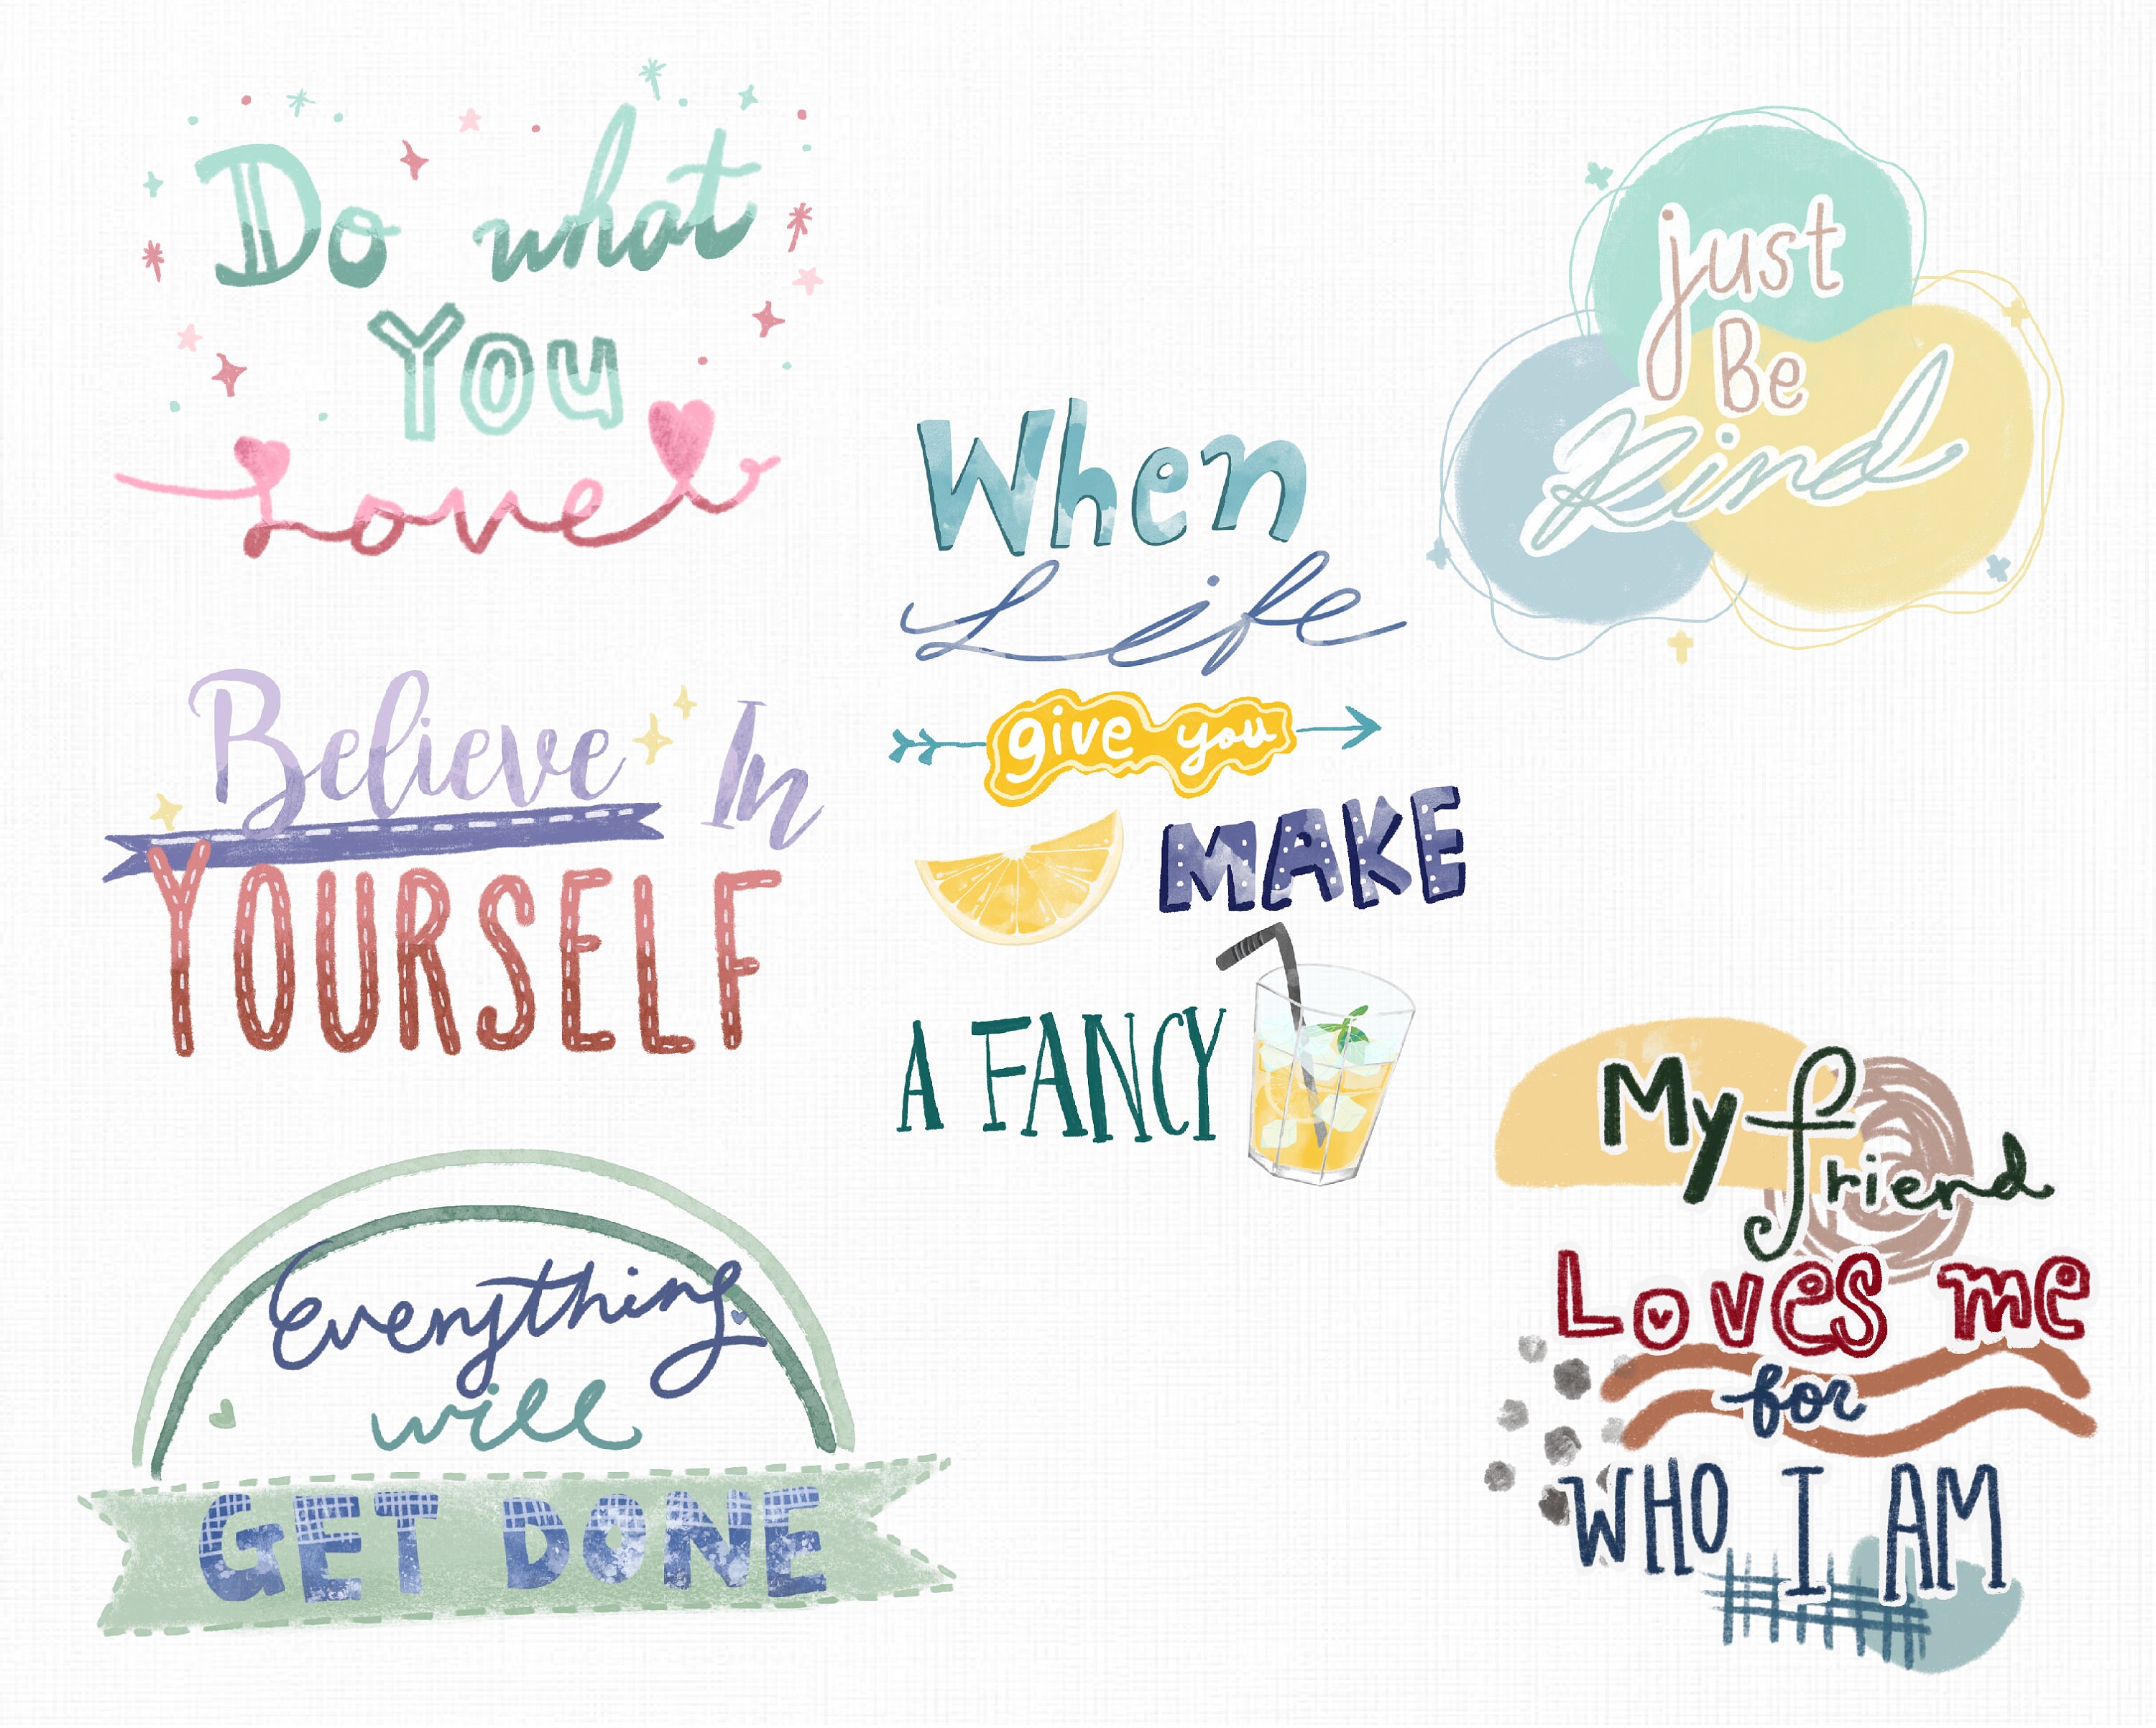 Do what
You
Love
Believe In
YOURSELF
Everything
will
GET DONE
When
Life
give you
MAKE
A FANCY
just
Be
Kind
My friend
Loves me
for
WHO I AM